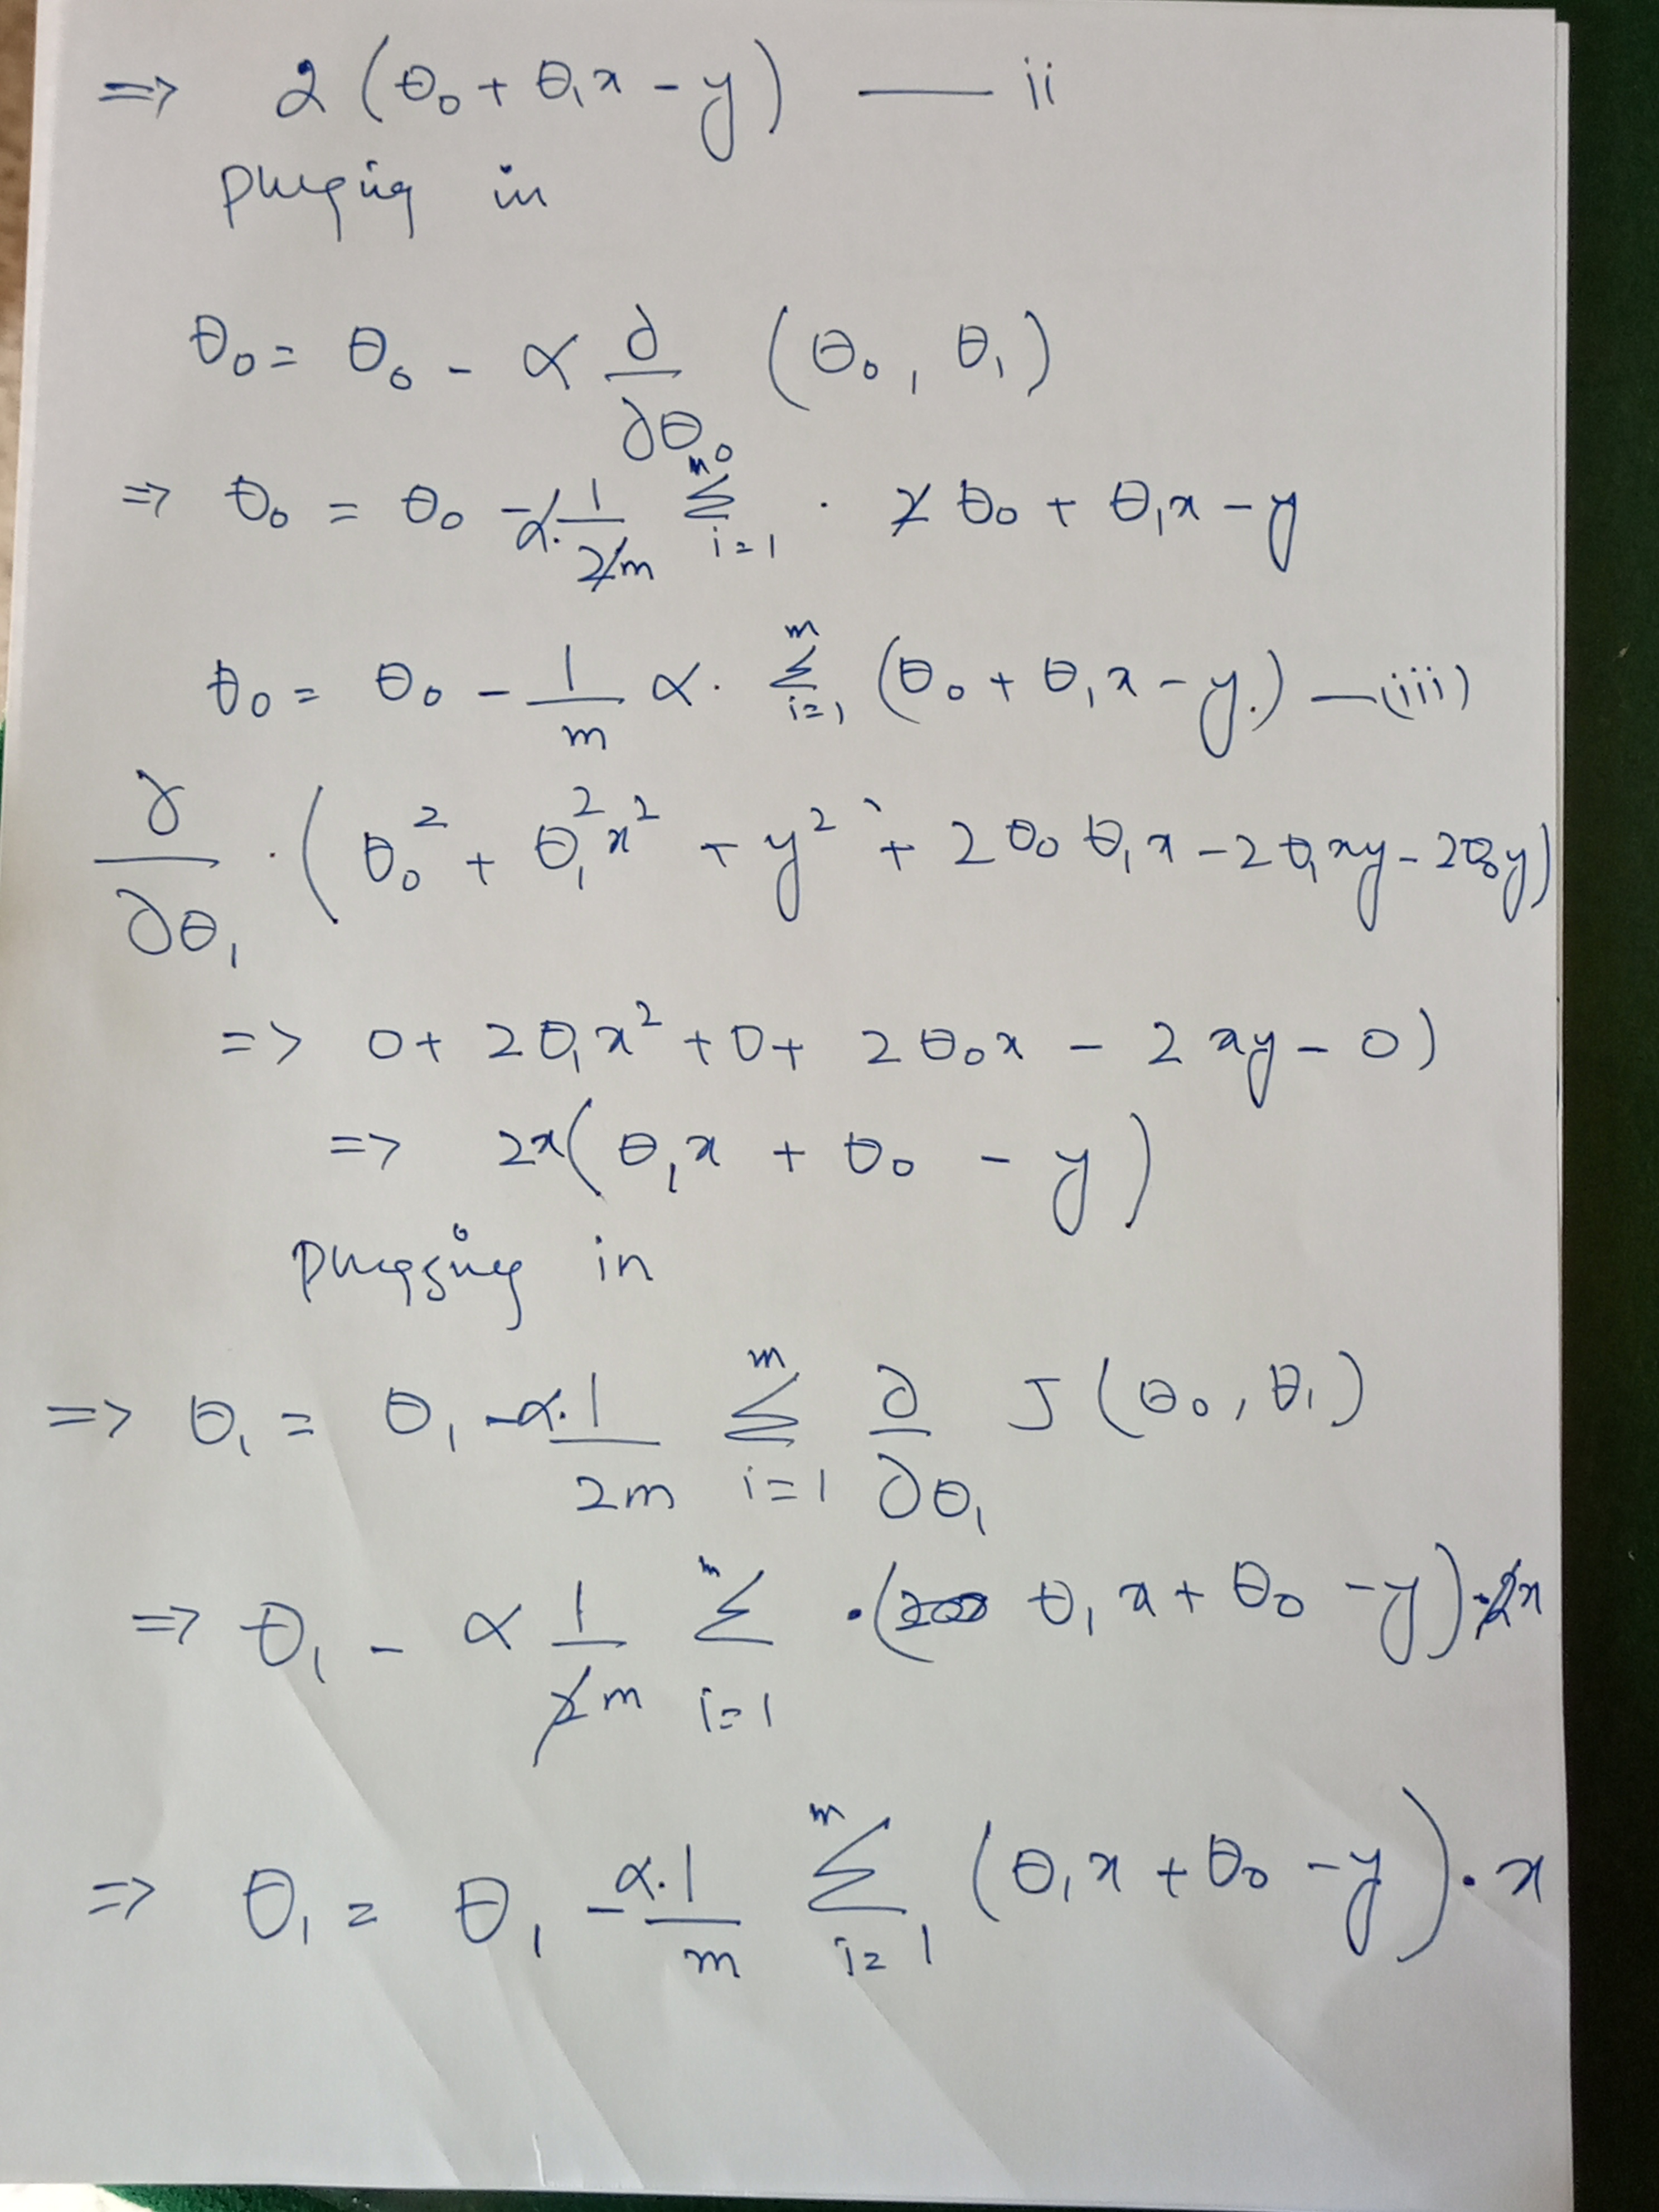 => 2 (θ₀ + θ₁x - y) — ii
pluging in
θ₀ = θ₀ - α ∂/∂θ₀ (θ₀, θ₁)
=> θ₀ = θ₀ - α · 1/2m Σᵢ₌₁ᵐ · 2 θ₀ + θ₁x - y
θ₀ = θ₀ - 1/m α · Σᵢ₌₁ᵐ (θ₀ + θ₁x - y.) — (iii)
∂/∂θ₁ · (θ₀² + θ₁²x² + y² + 2θ₀θ₁x - 2θ₁xy - 2θ₀y)
=> 0 + 2θ₁x² + 0 + 2θ₀x - 2xy - 0)
=> 2x(θ₁x + θ₀ - y)
plugging in
=> θ₁ = θ₁ - α · 1/2m Σᵢ₌₁ᵐ ∂/∂θ₁ J(θ₀, θ₁)
=> θ₁ - α 1/2m Σᵢ₌₁ᵐ · (θ₁x + θ₀ - y) · 2x
=> θ₁ = θ₁ - α · 1/m Σᵢ₌₁ᵐ (θ₁x + θ₀ - y) · x